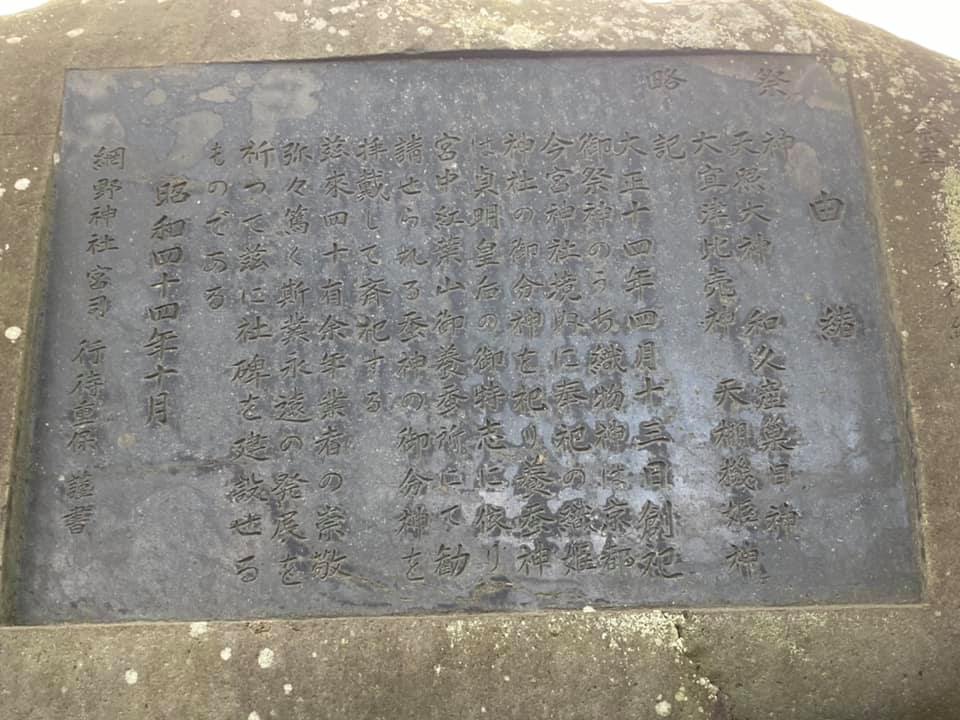 由緒
祭神
天照大神 和久産巣日神
大宜津比売神 天棚機姫神
略記
大正十四年四月十三日創祀
御祭神のうち織物神は京都
今宮神社境内に奉祀の織姫
神社の御分神を祀り養蚕神
は貞明皇后の御特志に依り
宮中紅葉山御養蚕所にて勧
請せられる蚕神の御分神を
拝戴して斉祀する
茲来四十有余年業者の崇敬
弥々篤く斯業永遠の発展を
祈つて茲に社碑を建設せる
ものである
昭和四十四年十月
網野神社宮司 行待 保 謹書